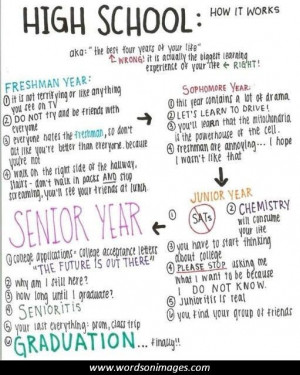 HIGH SCHOOL: HOW IT WORKS
aka: "the best four years of your life"
WRONG! it is actually the biggest learning
experience of your life ← RIGHT!
FRESHMAN YEAR:
① it is not terrifying or like anything
you see on TV
② DO NOT try and be friends with
everyone
③ everyone hates the freshman, so don't
act like you're better than everyone. because
you're not
④ walk on the right side of the hallway.
stairs - don't walk in packs AND stop
screaming, you'll see your friends at lunch.
SOPHOMORE YEAR:
① this year contains a lot of drama.
② LET'S LEARN TO DRIVE!
③ you'll learn that the mitochondria
is the powerhouse of the cell.
④ freshman are annoying... I hope
I wasn't like that
JUNIOR YEAR
① SATs
② CHEMISTRY
will consume
your life
③ you have to start thinking
about college
④ PLEASE STOP asking me
what I want to be because
I DO NOT KNOW.
⑤ Junioritis is real
⑥ you find your group of friends
SENIOR YEAR
① college applications + college acceptance letters
"THE FUTURE IS OUT THERE"
② why am I still here?
③ how long until I graduate?
④ SENIORITIS
⑤ your last everything: prom, class trip
⑥ GRADUATION... finally!!
www.wordsonimages.com